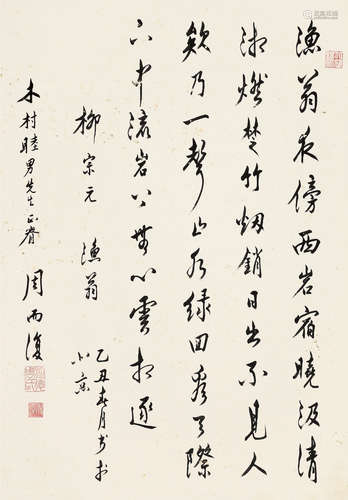 漁翁夜傍西岩宿曉汲清
湘燃楚竹烟銷日出不見人
欸乃一聲山水綠回看天際
下中流岩上無心雲相逐
柳宗元 漁翁
乙丑春月書於
北京
木村睦男先生正 周而復